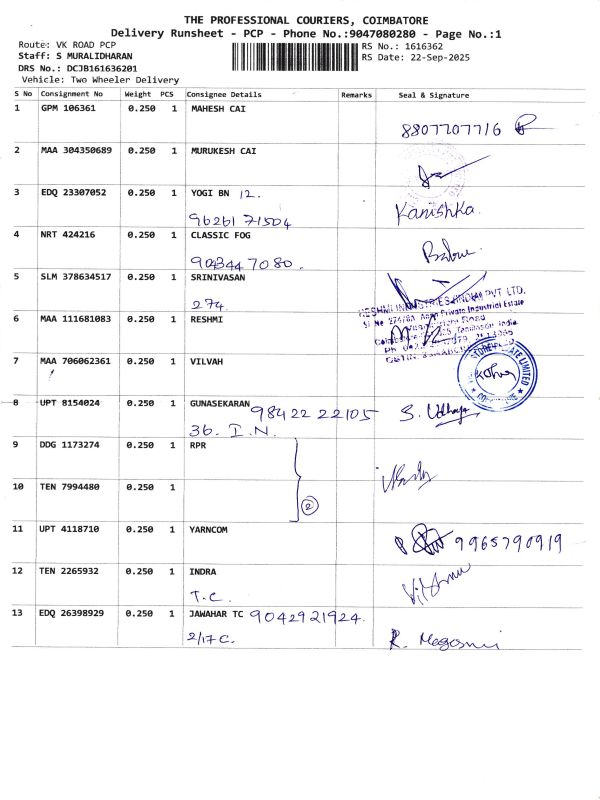 THE PROFESSIONAL COURIERS, COIMBATORE
Delivery Runsheet - PCP - Phone No.:9047080280 - Page No.:1
Route: VK ROAD PCP RS No.: 1616362
Staff: S MURALIDHARAN RS Date: 22-Sep-2025
DRS No.: DCJB161636201
Vehicle: Two Wheeler Delivery
S No Consignment No Weight PCS Consignee Details Remarks Seal & Signature
1 GPM 106361 0.250 1 MAHESH CAI
8807707716
2 MAA 304350689 0.250 1 MURUKESH CAI
3 EDQ 23307052 0.250 1 YOGI BN 12.
9626171504 Kanishka
4 NRT 424216 0.250 1 CLASSIC FOG
9043447080.
5 SLM 378634517 0.250 1 SRINIVASAN
274.
6 MAA 111681083 0.250 1 RESHMI
RESHMI INDUSTRIES (INDIA) PVT LTD.
Private Industrial Estate
7 MAA 706062361 0.250 1 VILVAH
8 UPT 8154024 0.250 1 GUNASEKARAN 98422 22105
36. I.N. S. Udhaya
9 DDG 1173274 0.250 1 RPR
10 TEN 7994480 0.250 1
2
11 UPT 4118710 0.250 1 YARNCOM
9965790919
12 TEN 2265932 0.250 1 INDRA
T.C.
13 EDQ 26398929 0.250 1 JAWAHAR TC 9042921924.
2/17 C. R.